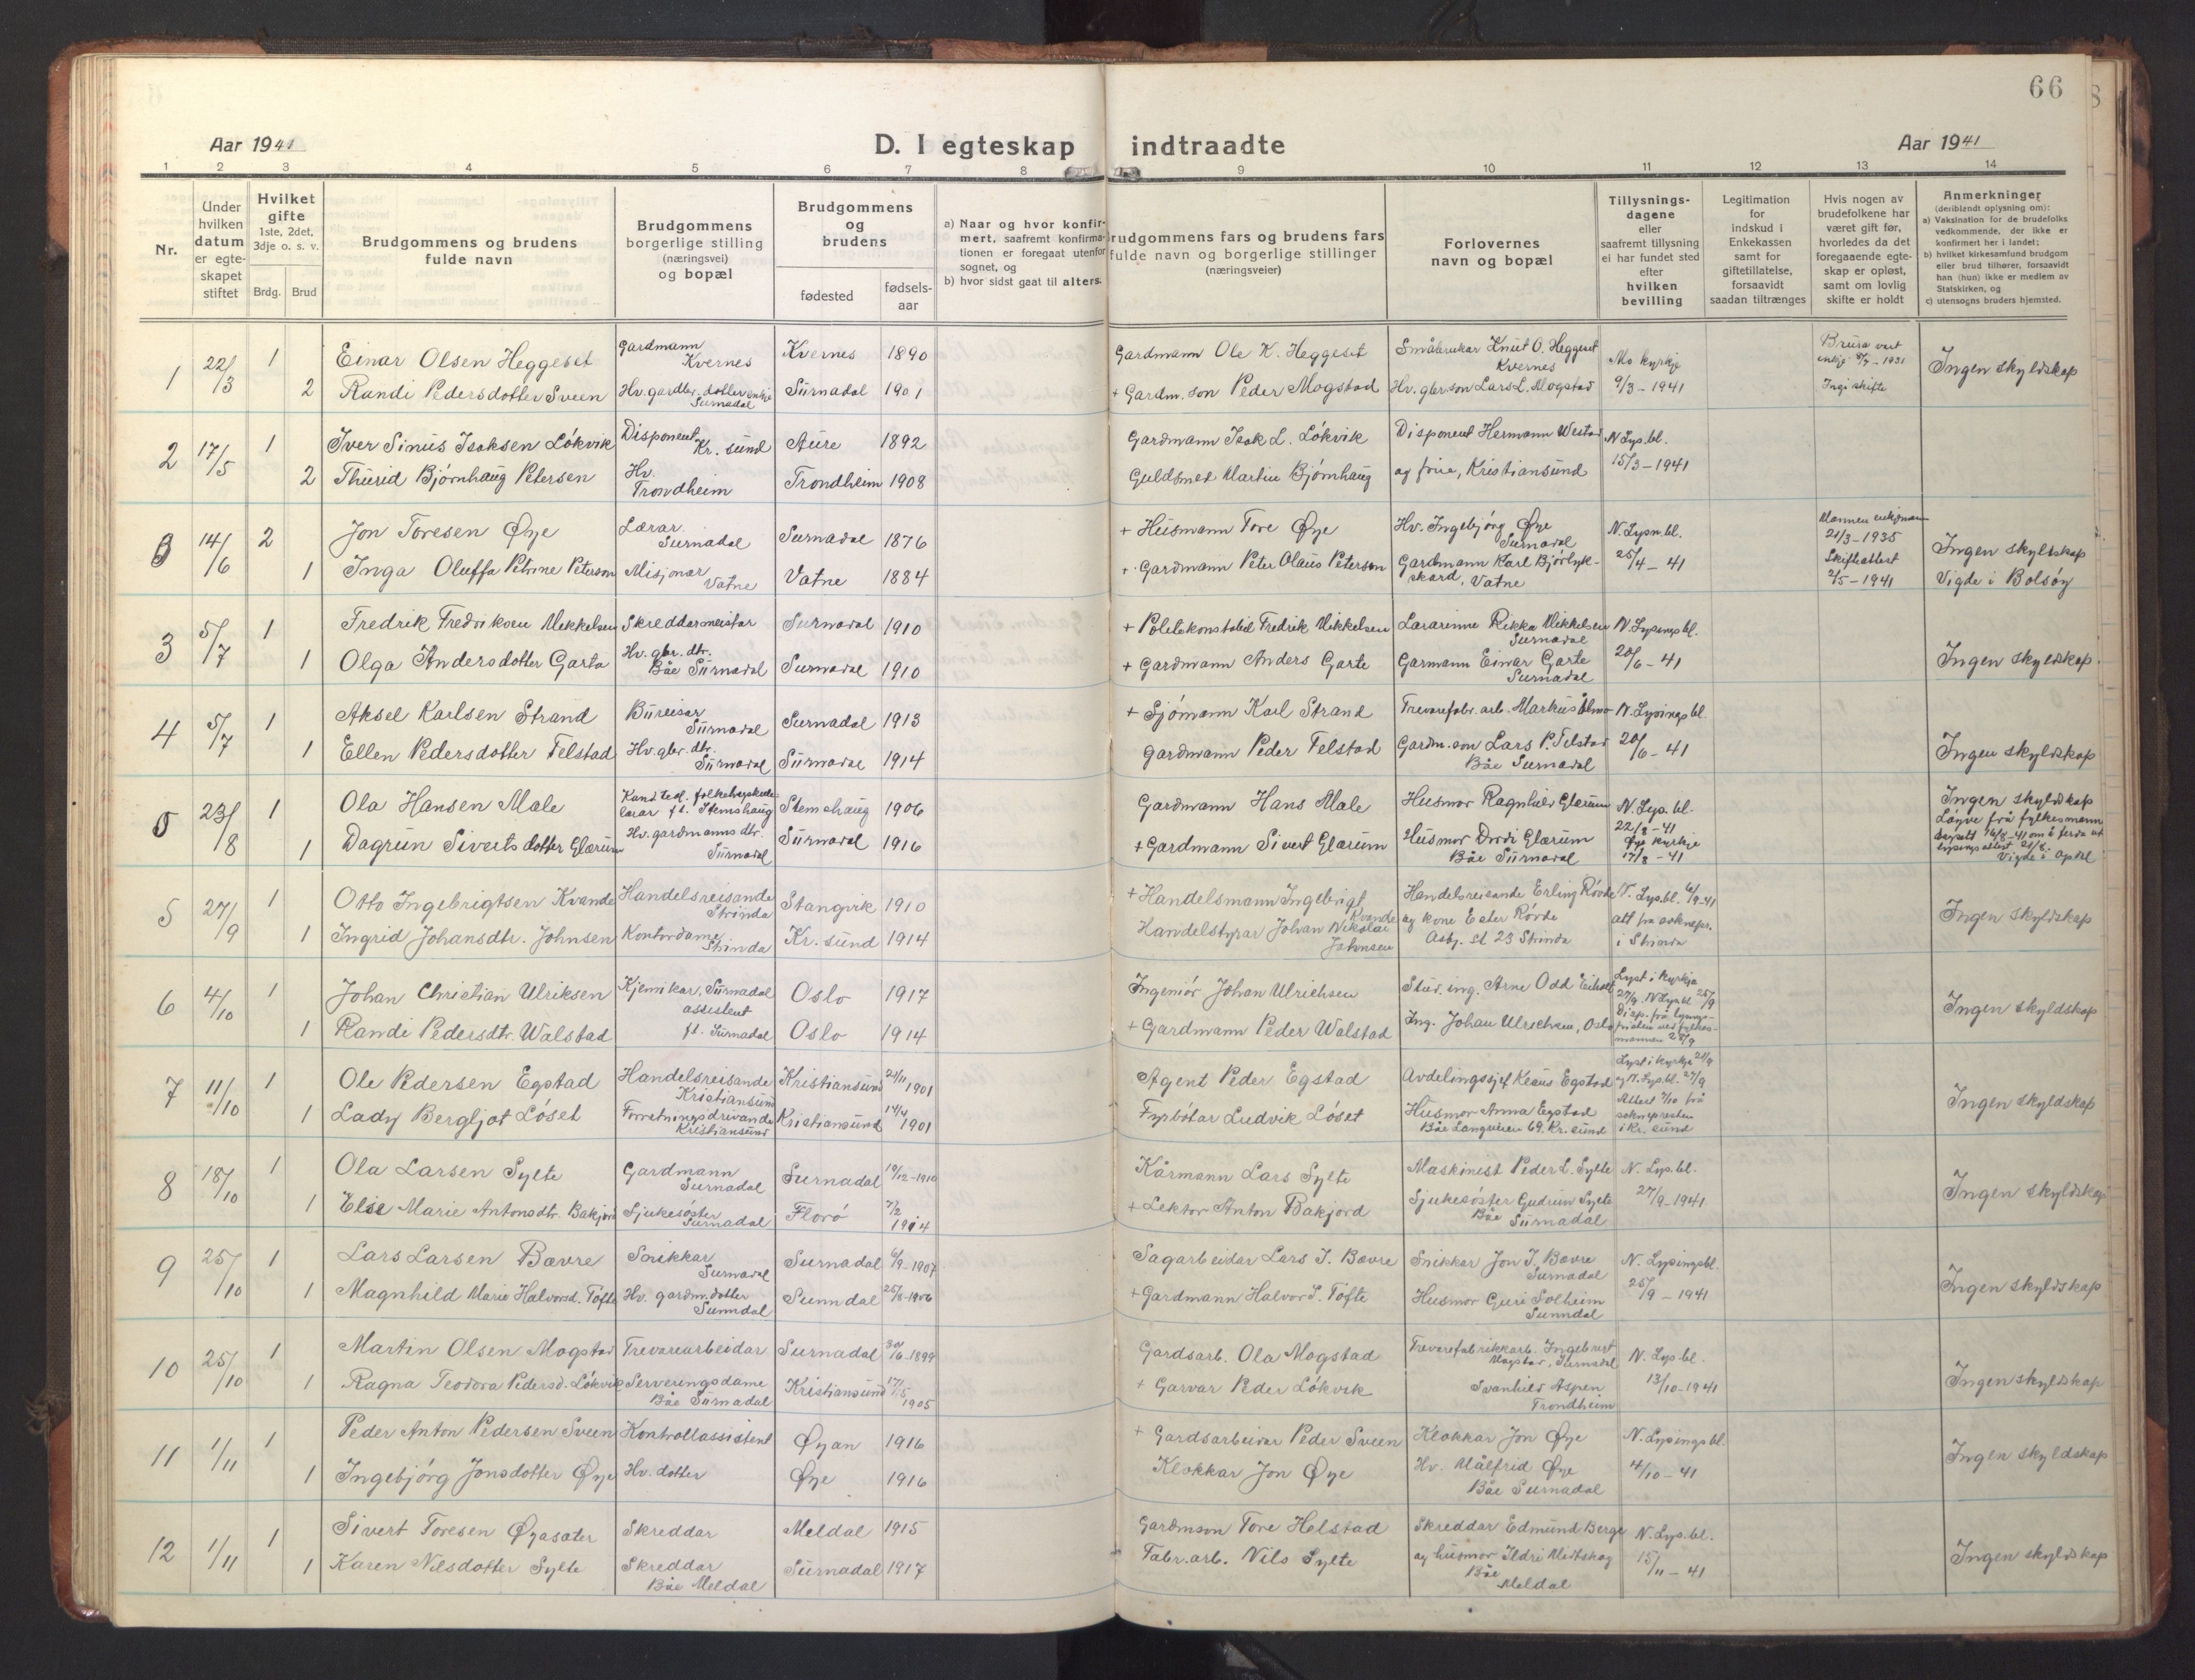 66
Aar 1941
D. I egteskap indtraadte
Aar 1941
1 2 3 4 5 6 7 8 9 10 11 12 13 14
Nr.
Under hvilken datum er egte-skapet stiftet
Hvilket gifte 1ste, 2det, 3dje o. s. v.
Brdg. Brud
Brudgommens og brudens fulde navn
Brudgommens borgerlige stilling (næringsvei) og bopæl
Brudgommens og brudens
fødested
fødsels-aar
a) Naar og hvor konfir-mert, saafremt konfirma-tionen er foregaat utenfor sognet, og
b) hvor sidst gaat til alters.
Brudgommens fars og brudens fars fulde navn og borgerlige stillinger (næringsveier)
Forlovernes navn og bopæl
Tillysnings-dagene eller saafremt tillysning ei har fundet sted efter hvilken bevilling
Legitimation for indskud i Enkekassen samt for giftetillatelse, forsaavidt saadan tiltrænges
Hvis nogen av brudefolkene har været gift før, hvorledes da det foregaaende egte-skap er opløst, samt om lovlig skifte er holdt
Anmerkninger (deriblandt oplysning om):
a) Vaksination for de brudefolks vedkommende, der ikke er konfirmert her i landet;
b) hvilket kirkesamfund brudgom eller brud tilhører, forsaavidt han (hun) ikke er medlem av Statskirken, og
c) utensogns bruders hjemsted.
1 22/3 1 Einar Olsen Heggeset Gardmann Kvernes Kvernes 1890 Gardmann Ole K. Heggeset Småbrukar Knut O. Heggeset Kvernes Mo kyrkje Brura vart enkje 1931 Ingen skyldskap
2 Randi Pedersdotter Sveen Hv. gardbr. dotter enkje Surnadal Surnadal 1901 + Gardm. son Peder Mogstad Hv. gbr. son Lars L. Mogstad 9/3 - 1941 Ingi skifte
2 17/5 1 Iver Sinus Isaksen Lókvik Disponent Kr. sund Aure 1892 Gardmann Isak L. Lókvik Disponent Hermann Westad N. Lys. bl.
2 Thurid Bjórnhaug Petersen Hv. Trondheim Trondheim 1908 Guldsmed Martin Bjórnhaug og frue, Kristiansund 15/3 - 1941
14/6 2 Jon Toresen Øye Lærar Surnadal Surnadal 1876 + Husmann Tore Øye Hv. Ingebjórg Øye Surnadal N. Lysn. bl. Mannen enkjemann 21/3 - 1935 Ingen skyldskap
1 Inga Oluffa Petrine Peterson Misjonær Vatne Vatne 1884 + Gardmann Peter Olaus Peterson Gardmann Karl Bjórlyk-skard, Vatne 25/4 - 41 Skifteattest 2/5 - 1941 Vigde i Bolsóy
3 5/7 1 Fredrik Fredriksen Mikkelsen Skreddarmeistar Surnadal 1910 + Politikonstabel Fredrik Mikkelsen Lærarinne Rikka Mikkelsen Surnadal N. Lysings bl.
1 Olga Andersdotter Garte Hv. gbr. dtr. Båe Surnadal Surnadal 1910 + Gardmann Anders Garte Garmann Einar Garte Surnadal 20/6 - 41 Ingen skyldskap.
4 5/7 1 Aksel Karlsen Strand Bureisar Surnadal Surnadal 1913 + Sjómann Karl Strand Trevarefabr. arb. Markus Almo N. Lysings bl.
1 Ellen Pedersdotter Telstad Hv. gbr. dtr. Surnadal Surnadal 1914 Gardmann Peder Telstad Gardm. son Lars P. Telstad Båe Surnadal 20/6 - 41 Ingen skyldskap
5 23/8 1 Ola Hansen Male Kand teol. folkehøgskule lærar f.t. Stemshaug Stemshaug 1906 Gardmann Hans Male Husmor Ragnhild Glærum N. Lys. bl. 22/8 - 41 Ingen skyldskap
1 Dagrun Siverts dotter Glærum Hv. gardmanns dtr. Surnadal Surnadal 1916 + Gardmann Sivert Glærum Husmor Dordi Glærum Båe Surnadal Øye kyrkje 17/8 - 41 Løyve frå fylkesmann 16/8-41 om å ferda ut lysingsattest 21/8. Vigde i Opdal
5 27/9 1 Otto Ingebrigtsen Kvande Handelsreisande Strinda Stangvik 1910 + Handelsmann Ingebrigt Kvande Handelsreisande Erling Róvde N. Lys. bl. 6/9-41
1 Ingrid Johansdtr. Johnsen Kontordame Strinda Kr. sund 1914 Handelstyrar Johan Nikolai Johnsen og kone Ester Róvde Asby. st 23 Strinda att frå soknepr. i Strinda Ingen skyldskap
6 4/10 1 Johan Christian Ulriksen Kjemikar, Surnadal assistent Oslo 1917 Ingeniór Johan Ulrichsen Stud. ing. Arne Odd Lyst i kyrkja 27/9. N. Lys. bl 25/9
1 Randi Pedersdtr. Walstad f.t. Surnadal Oslo 1914 + Gardmann Peder Walstad Ing. Johan Ulrichsen, Oslo Disp. frå lysings-fristen ved fylkes-mannen Ingen skyldskap
7 11/10 1 Ole Pedersen Egstad Handelsreisande Kristiansund Kristiansund 21/11 1901 Agent Peder Egstad Avdelingssjef Klaus Egstad Lyst i kyrkje 21/9 og N. Lys. bl. 27/9
1 Lady Bergljot Lóset Forretningsdrivande Kristiansund Kristiansund 14/4 1901 Fyrbótar Ludvik Lóset Husmor Anna Egstad Båe Langveien 69. Kr. sund Attest 7/10 frå soknepresten i Kr. sund Ingen skyldskap
8 18/10 1 Ola Larsen Sylte Gardmann Surnadal Surnadal 19/12-1910 Kårmann Lars Sylte Maskinist Peder L. Sylte N. Lys. bl.
1 Else Marie Antonsdtr. Bakjord Sjukesóster Surnadal Floró 7/2 1914 + Lektor Anton Bakjord Sjukesóster Gudrun Sylte Båe Surnadal 27/9 - 1941 Ingen skyldskap
9 25/10 1 Lars Larsen Bævre Snikkar Surnadal Surnadal 6/9-1907 Sagarbeidar Lars J. Bævre Snikkar Jon J. Bævre Surnadal N. Lysingsbl.
1 Magnhild Marie Halvorsd. Tófte Hv. gardm. dotter Sunndal Sunndal 25/8-1906 + Gardmann Halvor S. Tófte Husmor Guri Solheim Sunndal 25/9 - 1941 Ingen skyldskap
10 25/10 1 Martin Olsen Mogstad Trevarearbeidar Surnadal 30/6-1899 Gardsarb. Ola Mogstad Trevarefabrikkarb. Ingebret Mogstad, Surnadal N. Lys. bl.
1 Ragna Teodora Pedersd. Lókvik Serveringsdame Båe Surnadal Kristiansund 17/5 1905 + Garvar Peder Lókvik Svanhild Aspen Trondheim 13/10-1941 Ingen skyldskap
11 1/11 1 Peder Anton Pedersen Sveen Kontrollassistent Øyan 1916 + Gardsarbeidar Peder Sveen Klokkar Jon Øye N. Lysings bl.
1 Ingebjórg Jonsdotter Øye Hv. dotter Øye 1916 Klokkar Jon Øye Hv. Målfrid Øye Båe Surnadal 4/10 - 41 Ingen skyldskap
12 1/11 1 Sivert Toresen Øyasæter Skreddar Meldal 1915 Gardmson Tore Helstad Skreddar Edmund Berge N. Lys. bl.
1 Karen Nilsdotter Sylte Skreddar Båe Meldal Surnadal 1917 Fabr. arb. Nils Sylte og husmor Ildri Midtskog Båe Meldal 15/11 - 41 Ingen skyldskap